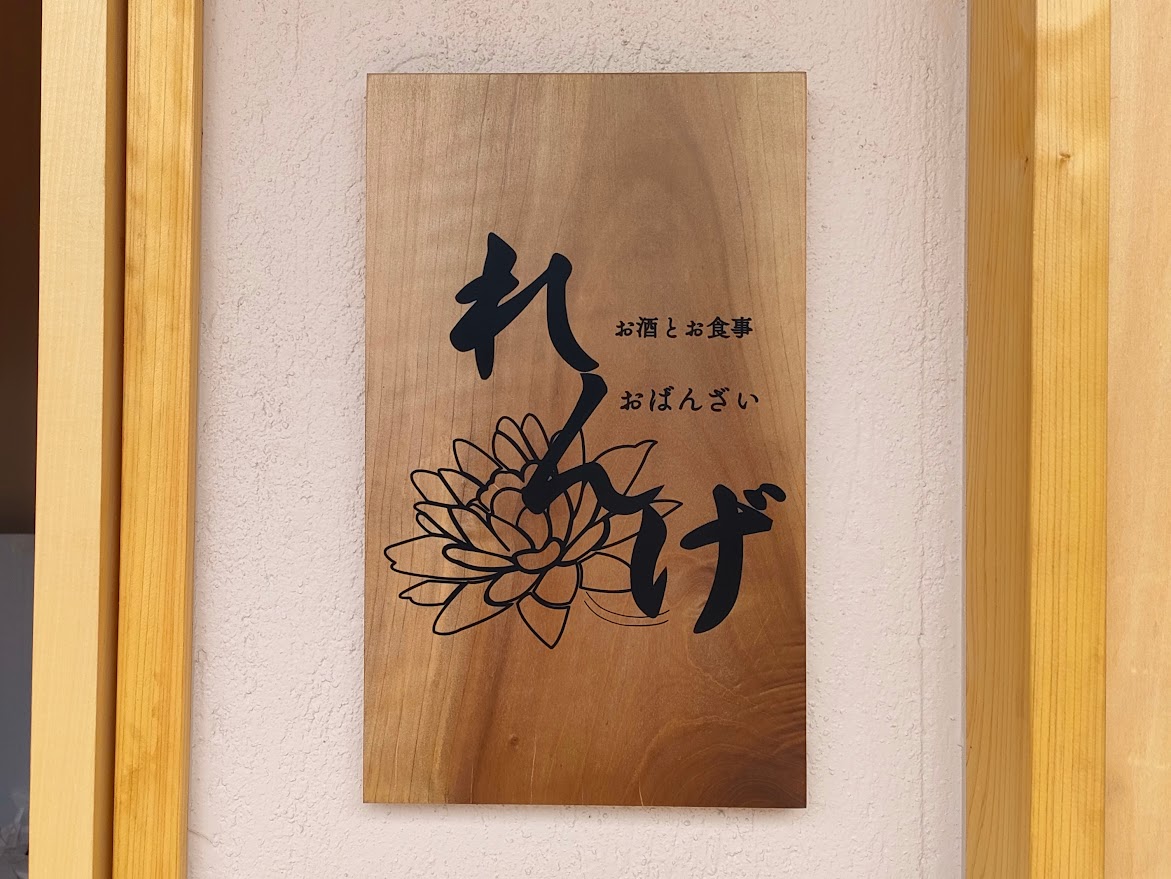 れんげ
お酒とお食事
おばんざい